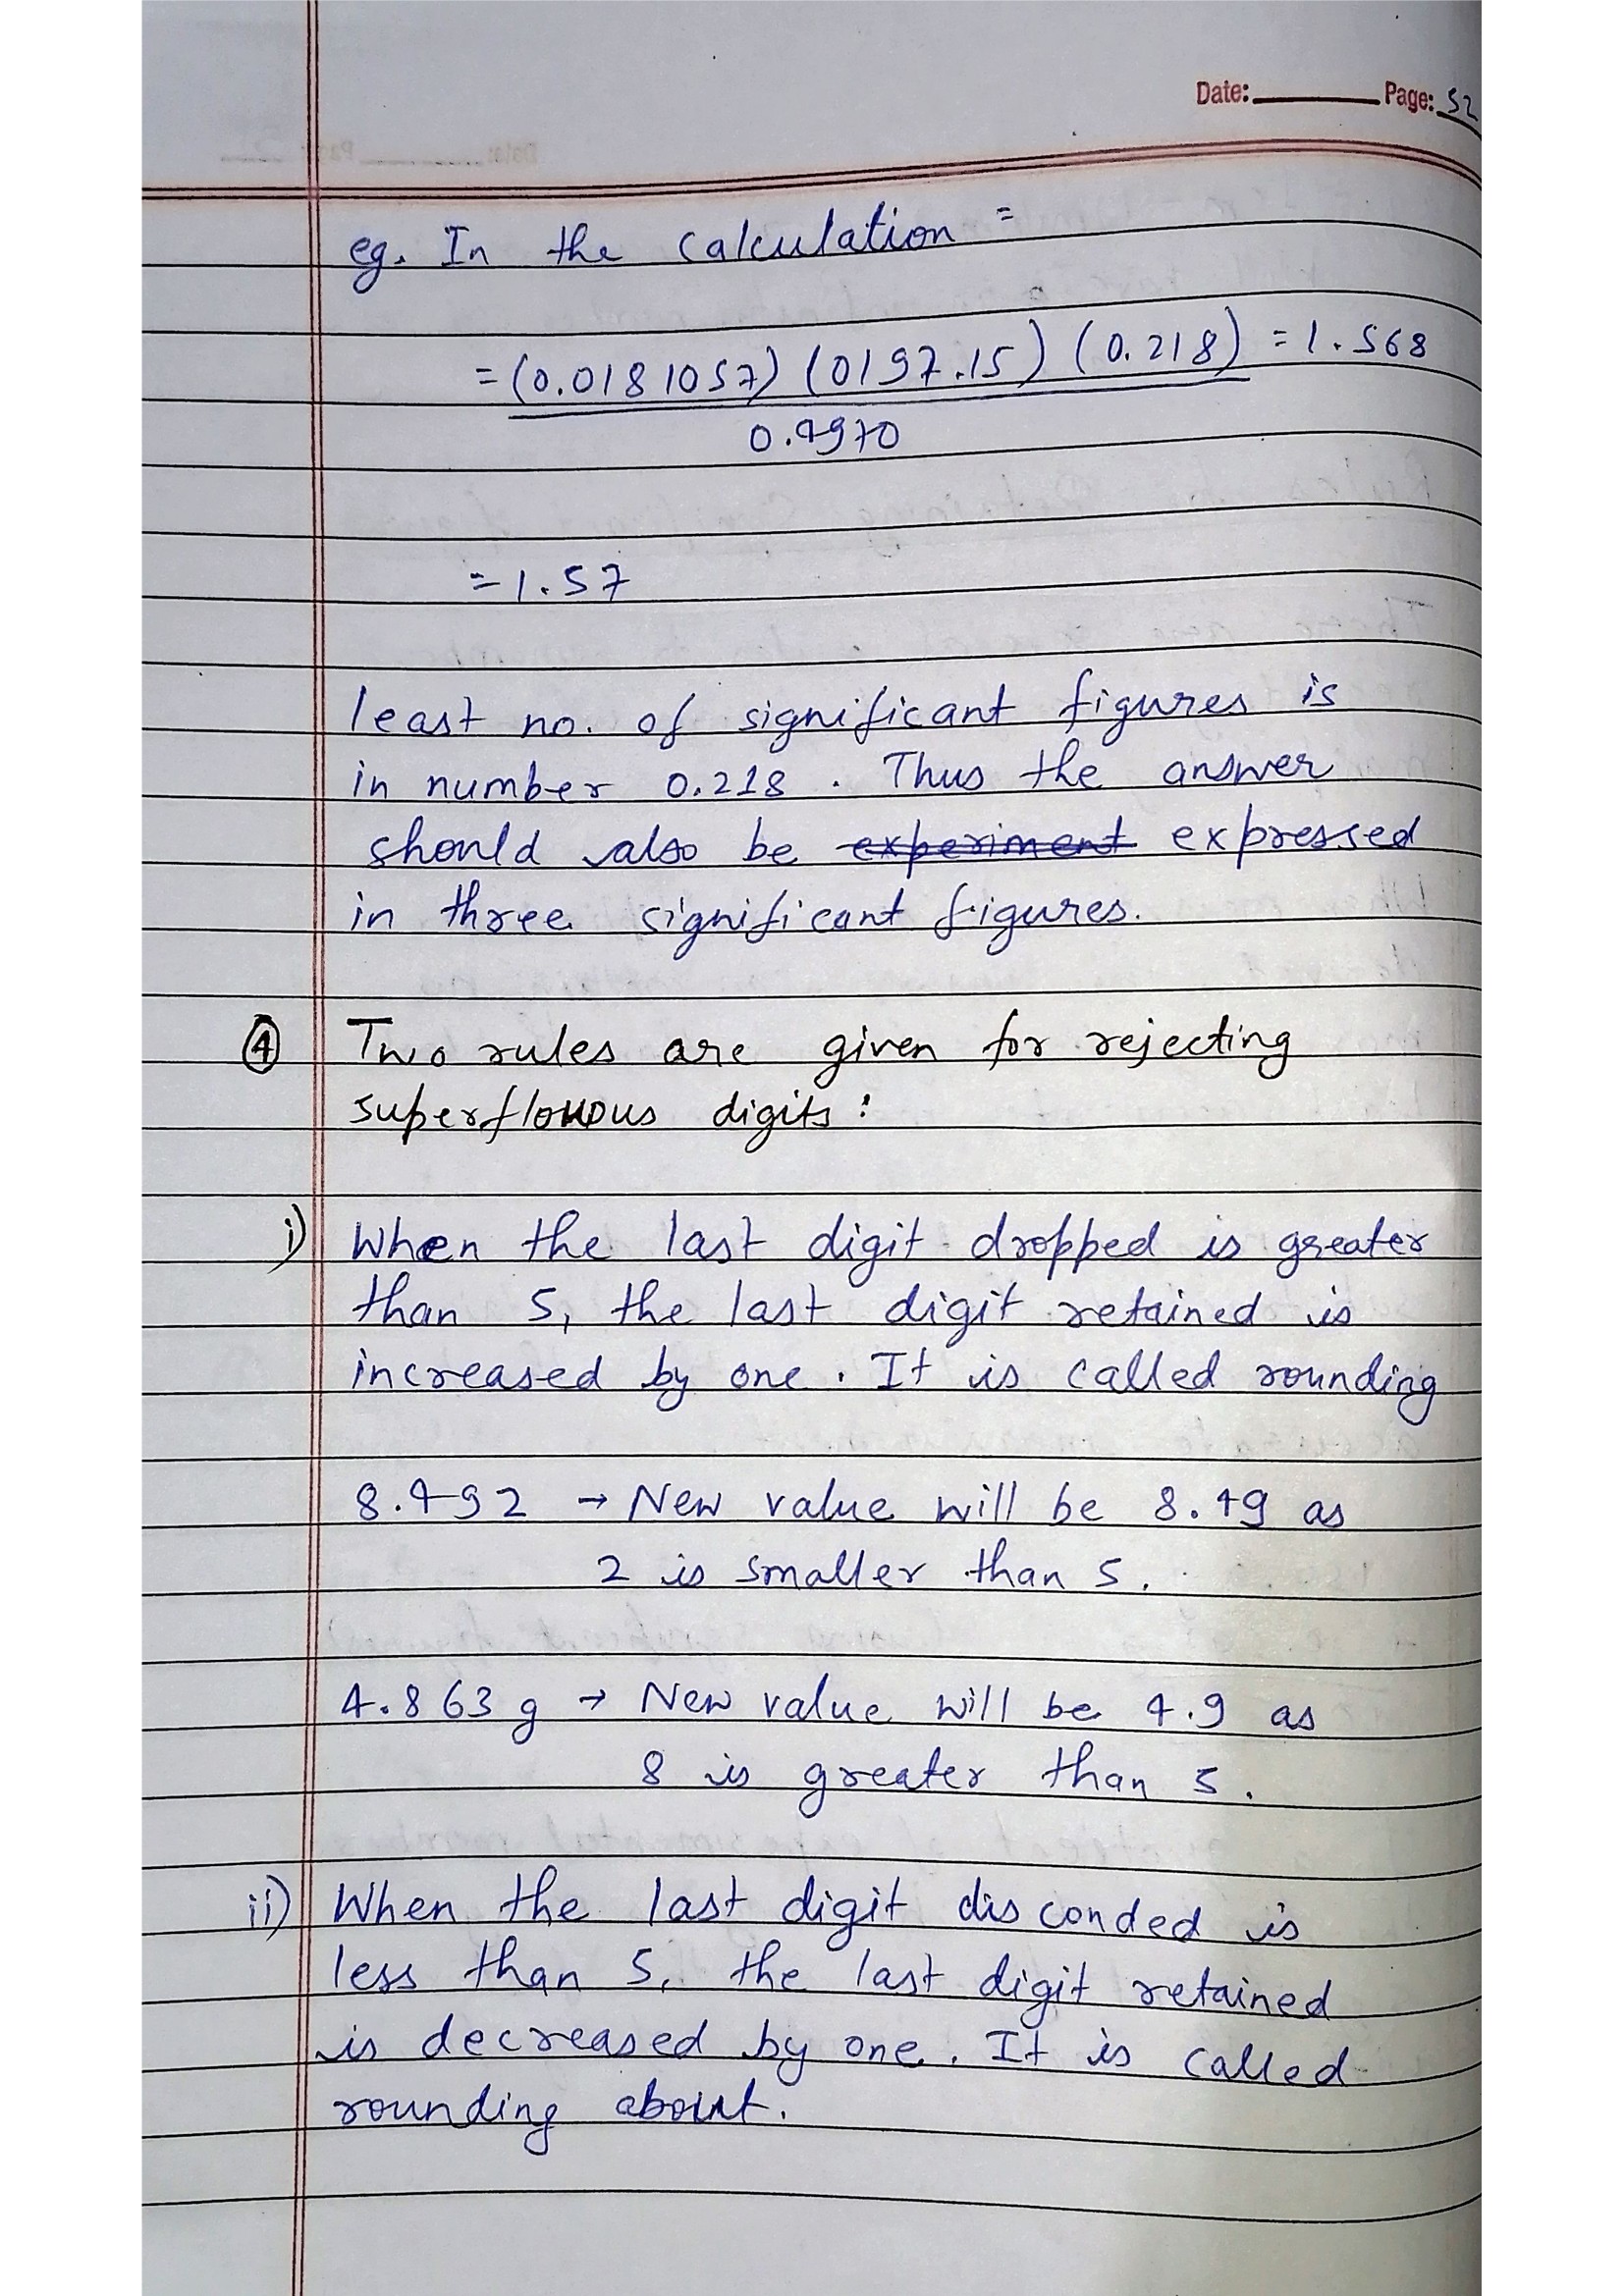 Date: Page: 52
eg. In the calculation =
= (0.0181057) (0197.15) (0.218) = 1.568
0.4970
= 1.57
least no. of significant figures is
in number 0.218 . Thus the answer
should also be experiment expressed
in three significant figures.
④ Two rules are given for rejecting
superflouous digits :
i) When the last digit dropped is greater
than 5, the last digit retained is
increased by one. It is called rounding
8.492 → New value will be 8.49 as
2 is smaller than 5.
4.863 g → New value will be 4.9 as
8 is greater than 5.
ii) When the last digit disconded is
less than 5, the last digit retained
is decreased by one. It is called
rounding about.